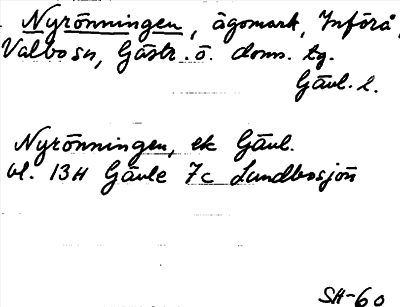 Nyrönningen, ägomark, Införå,
Valbo sn, Gästr. ö. doms. tg.
Gävl. l.
Nyrönningen, ek Gävl.
bl. 13H Gävle 7c Lundbosjön
SH-60